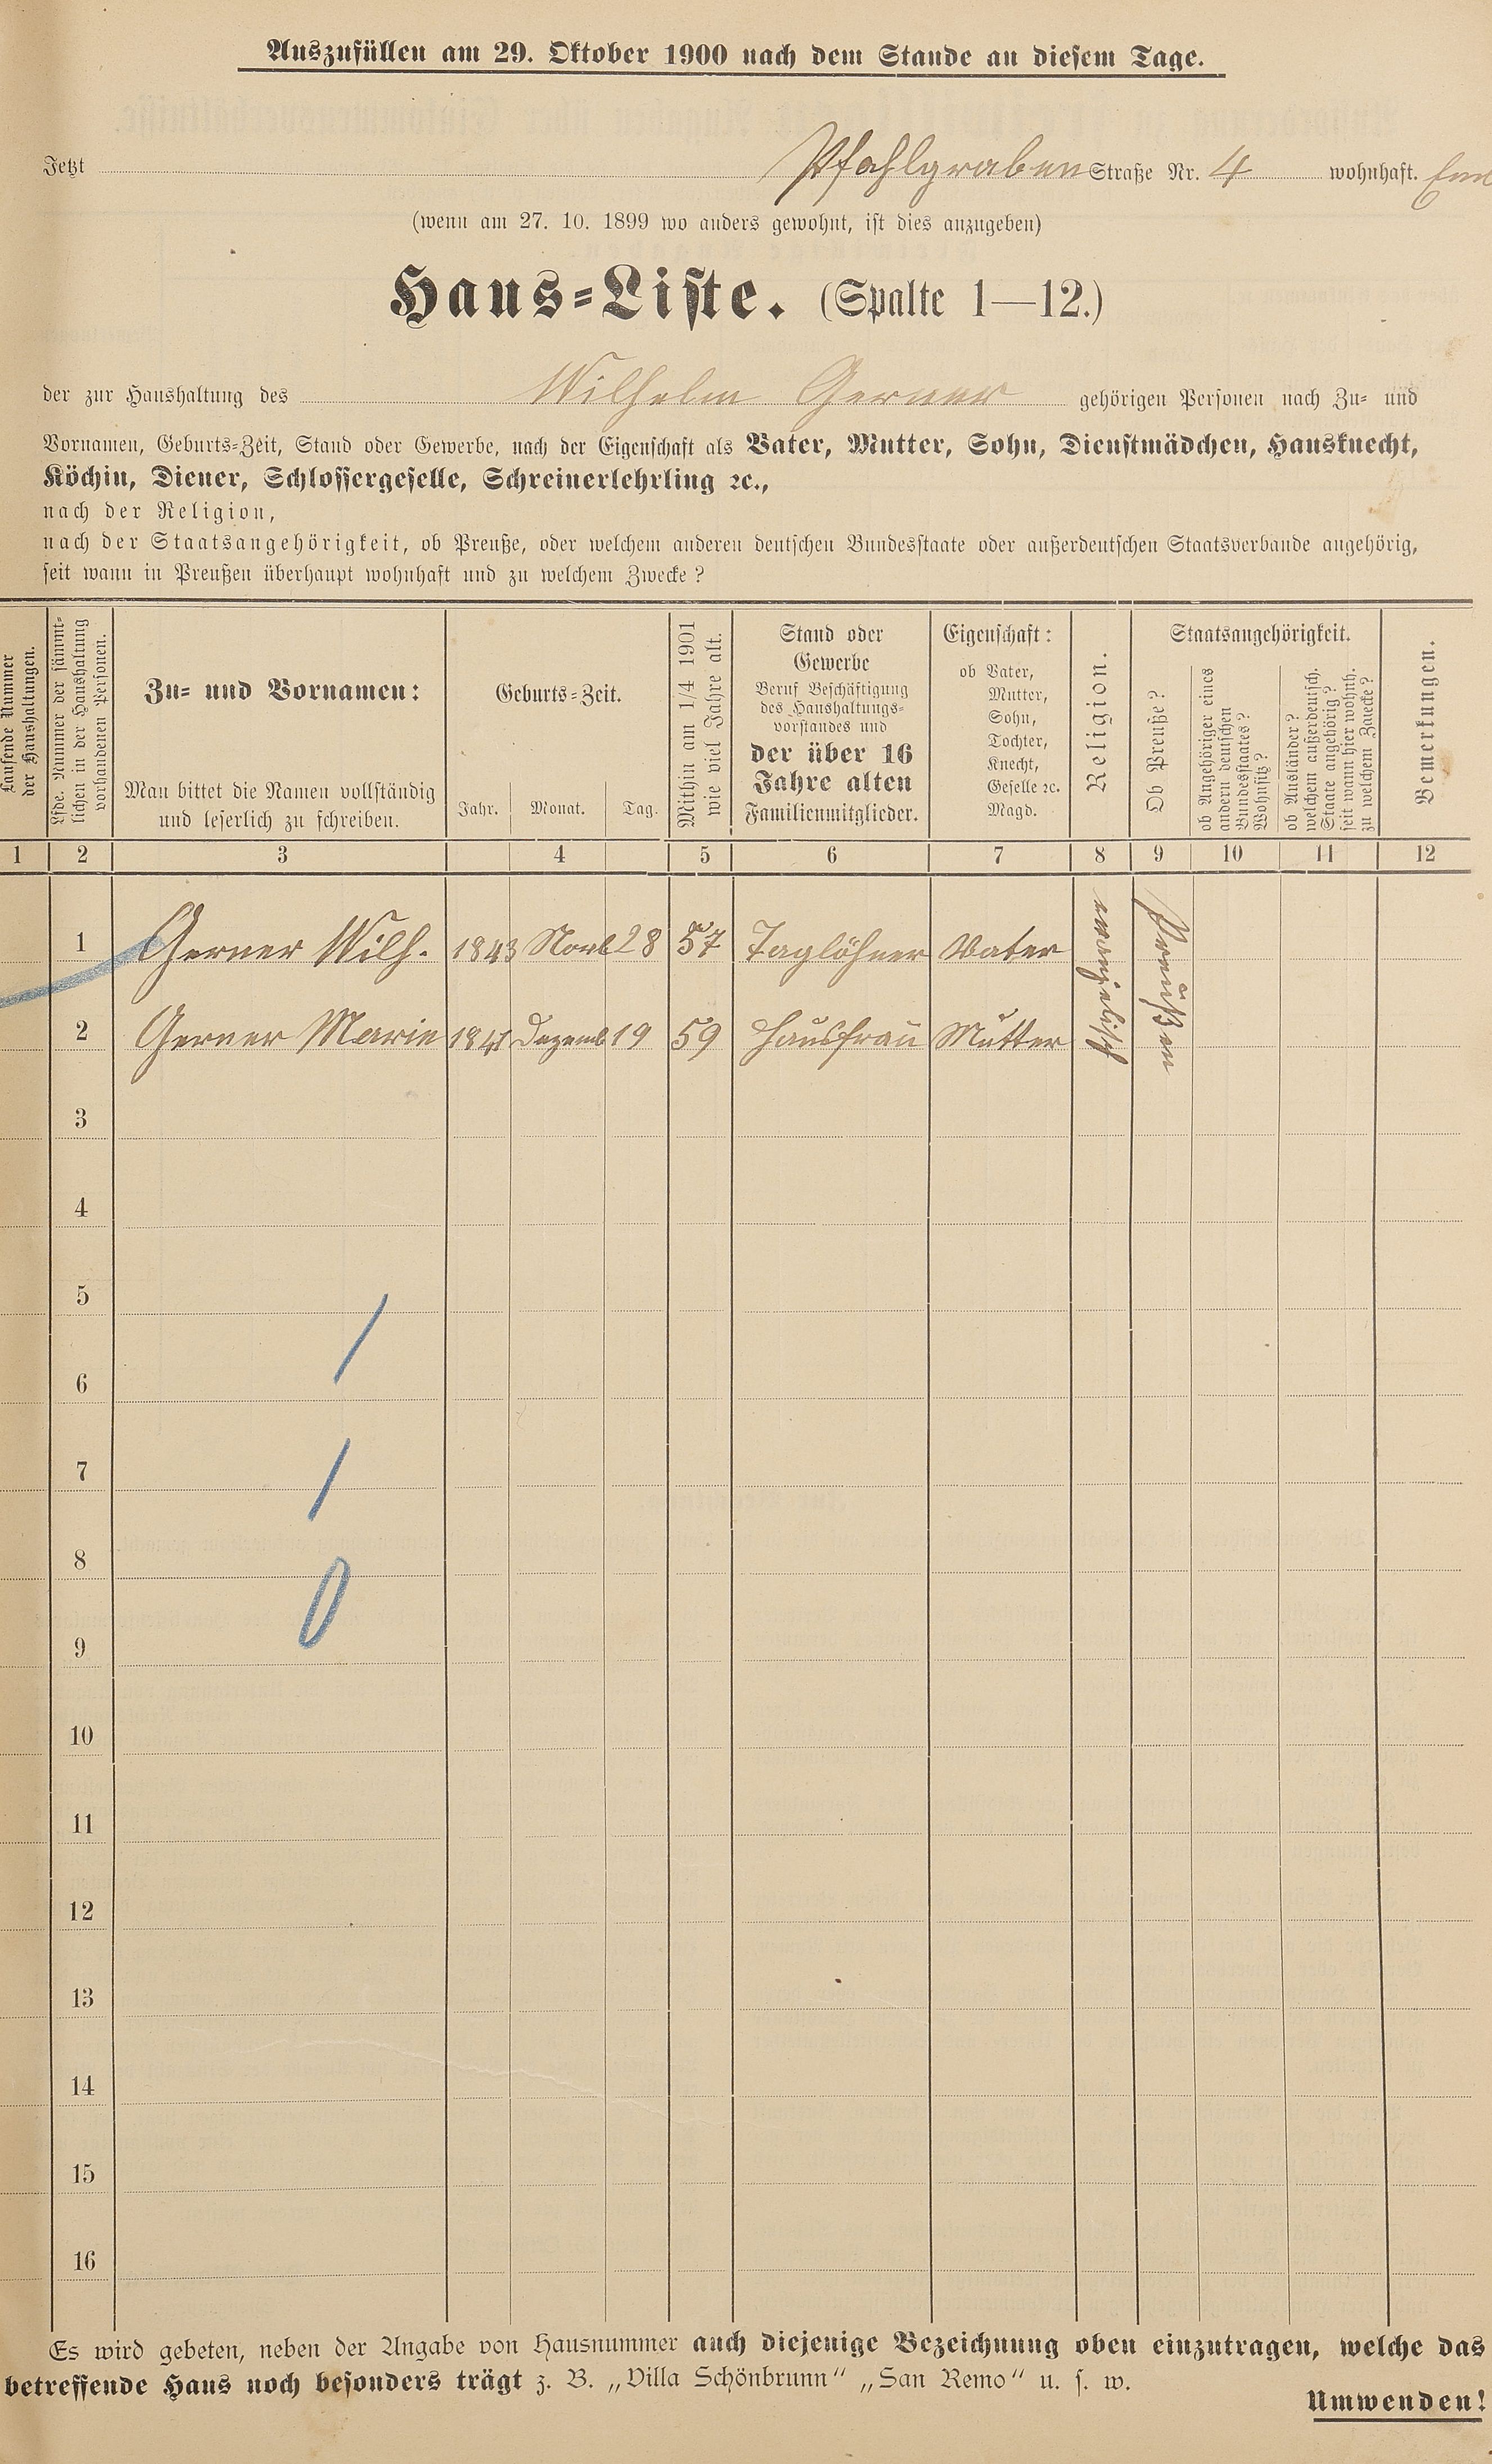 Auszufüllen am 29. Oktober 1900 nach dem Stande an diesem Tage.
Jetzt Pfahlgraben Straße Nr. 4 wohnhaft.
(wenn am 27. 10. 1899 wo anders gewohnt, ist dies anzugeben)
Haus-Liste. (Spalte 1—12.)
der zur Haushaltung des Wilhelm Gerner gehörigen Personen nach Zu- und
Vornamen, Geburts-Zeit, Stand oder Gewerbe, nach der Eigenschaft als Vater, Mutter, Sohn, Dienstmädchen, Hausknecht,
Köchin, Diener, Schlossergeselle, Schreinerlehrling ꝛc.,
nach der Religion,
nach der Staatsangehörigkeit, ob Preuße, oder welchem anderen deutschen Bundesstaate oder außerdeutschen Staatsverbande angehörig,
seit wann in Preußen überhaupt wohnhaft und zu welchem Zwecke?
Laufende Nummer
der Haushaltungen.
Lfde. Nummer der sämmt-
lichen in der Haushaltung
vorhandenen Personen.
Zu- und Vornamen:
Man bittet die Namen vollständig
und leserlich zu schreiben.
Geburts-Zeit.
Jahr. Monat. Tag.
Mithin am 1/4 1901
wie viel Jahre alt.
Stand oder
Gewerbe
Beruf Beschäftigung
des Haushaltungs-
vorstandes und
der über 16
Jahre alten
Familienmitglieder.
Eigenschaft:
ob Vater,
Mutter,
Sohn,
Tochter,
Knecht,
Geselle ꝛc.
Magd.
Religion.
Staatsangehörigkeit.
Ob Preuße?
ob Angehöriger eines
andern deutschen
Bundesstaates?
Wohnsitz?
ob Ausländer?
welchem außerdeutsch.
Staate angehörig?
seit wann hier wohnh.
zu welchem Zwecke?
Bemerkungen.
1 2 3 4 5 6 7 8 9 10 11 12
1 Gerner Wilh. 1843 Novb 28 57 Taglöhner Vater
2 Gerner Marie 1841 Dezemb 19 59 Hausfrau Mutter
evangelisch
Preußen
3
4
5
6
7
8
9
10
11
12
13
14
15
16
Es wird gebeten, neben der Angabe von Hausnummer auch diejenige Bezeichnung oben einzutragen, welche das
betreffende Haus noch besonders trägt z. B. „Villa Schönbrunn“ „San Remo“ u. s. w.
Umwenden!